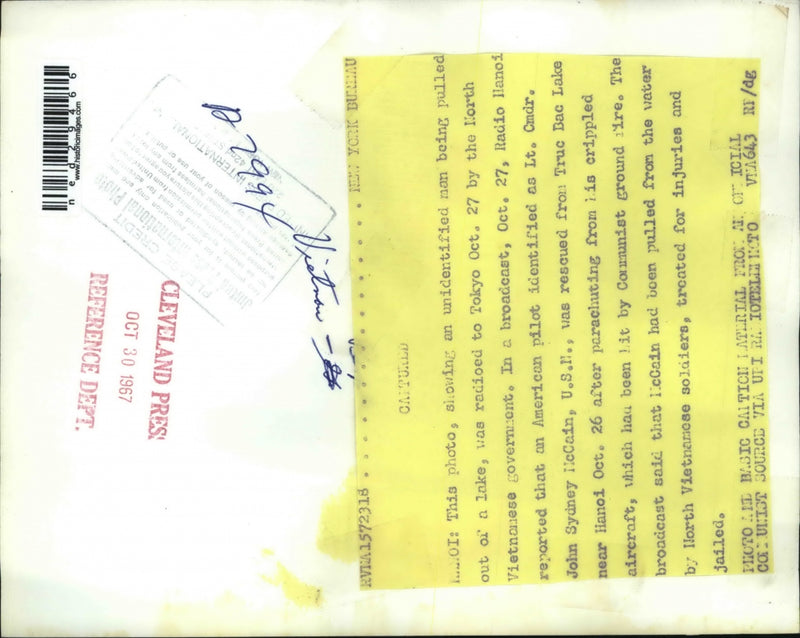 RVHA1572318 . . . . . . . . . . . . . . . . . . . . . NEW YORK BUREAU
CAPTURED
HANOI: This photo, showing an unidentified man being pulled
out of a lake, was radioed to Tokyo Oct. 27 by the North
Vietnamese government. In a broadcast, Oct. 27, Radio Hanoi
reported that an American pilot identified as Lt. Cmdr.
John Sydney McCain, U.S.N., was rescued from Truc Bac Lake
near Hanoi Oct. 26 after parachuting from his crippled
aircraft, which had been hit by Communist ground fire. The
broadcast said that McCain had been pulled from the water
by North Vietnamese soldiers, treated for injuries and
jailed.
PHOTO AND BASIC CAPTION MATERIAL FROM AN OFFICIAL
COMMUNIST SOURCE VIA UPI RADIOTELEPHOTO VHA643 RF/dg
CLEVELAND PRESS
OCT 30 1967
REFERENCE DEPT.
Vietnam -
CREDIT
INTERNATIONAL
www.historicimages.com
ned29466